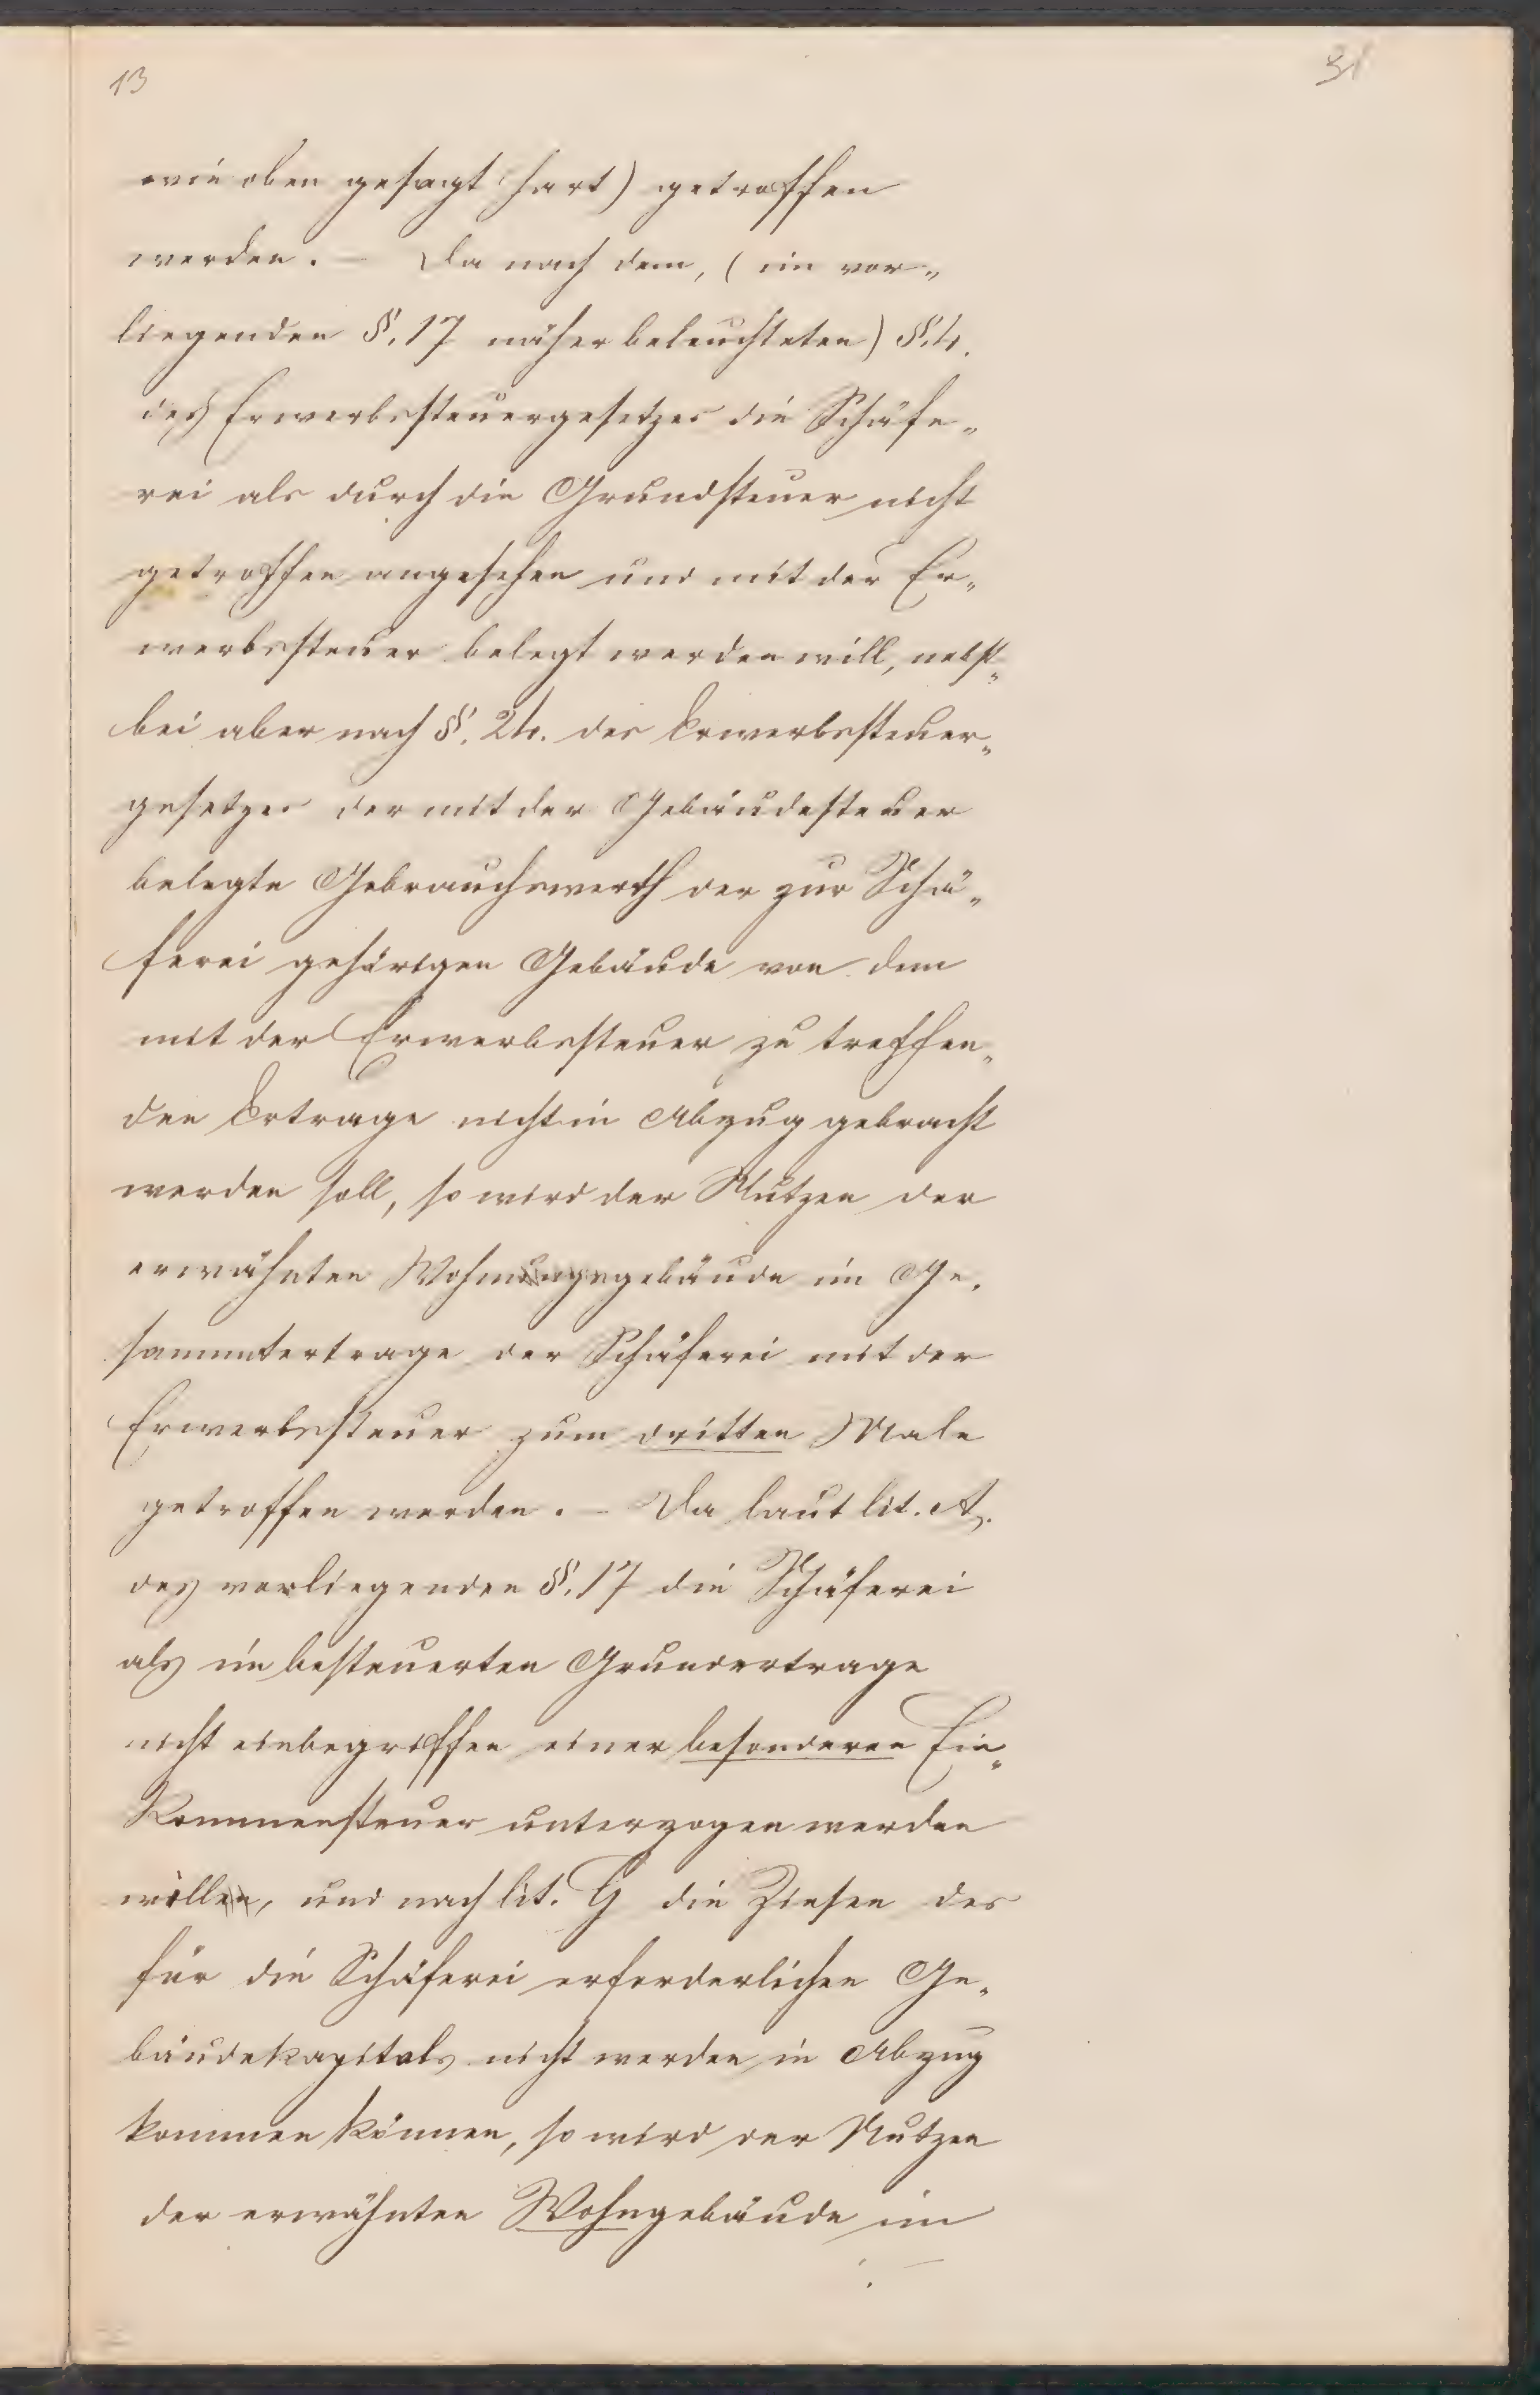 13
31
wie oben gesagt hart) getroffen
werden. – Da nach dem, (im vor„
liegenden §. 17 näher beleuchteten) §. 4.
des Erwerbssteuergesetzes die Schäfe„
rei als durch die Grundsteuer nicht
getroffen angesehen und mit der Er„
werbssteuer belegt werden will, nebst„
bei aber nach §. 24. des Erwerbssteuer„
gesetzes der mit der Gebäudesteuer
belegte Gebrauchswerth der zur Schä„
ferei gehörigen Gebäude von dem
mit der Erwerbssteuer zu treffen„
den Ertrage nicht in Abzug gebracht
werden soll, so wird der Nutzen der
erwähnten Wohnungsgebäude im Ge„
sammtertrage der Schäferei mit der
Erwerbssteuer zum dritten Male
getroffen werden. – Da laut lit. A.
des vorliegenden §. 17 die Schäferei
als im besteuerten Grundertrage
nicht einbegriffen einer besonderen Ein„
kommensteuer unterzogen werden
wollen, und nach lit. G die Zinsen des
für die Schäferei erforderlichen Ge„
bäudekapitals nicht werden in Abzug
kommen können, so wird der Nutzen
der erwähnten Wohngebäude im